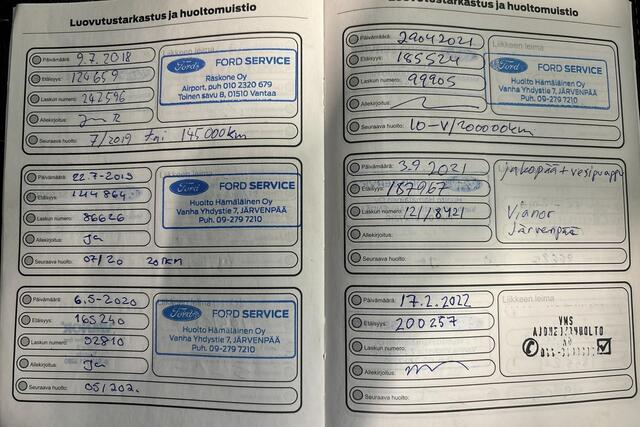 Luovutustarkastus ja huoltomuistio
Päivämäärä: 9.7.2018
Etäisyys: 124659
Laskun numero: 242596
Allekirjoitus:
Seuraava huolto: 7/2019 tai 145000km
Liikkeen leima
Ford FORD SERVICE
Raskone Oy
Airport, puh 010 2320 679
Toinen savu 8, 01510 Vantaa
Päivämäärä: 22.7-2019
Etäisyys: 144864
Laskun numero: 86626
Allekirjoitus: Ja
Seuraava huolto: 07/20 20tkm
Ford FORD SERVICE
Huolto Hämäläinen Oy
Vanha Yhdystie 7, JÄRVENPÄÄ
Puh. 09-279 7210
Päivämäärä: 6.5-2020
Etäisyys: 165240
Laskun numero: 02810
Allekirjoitus: Ja
Seuraava huolto: 05/202.
Ford FORD SERVICE
Huolto Hämäläinen Oy
Vanha Yhdystie 7, JÄRVENPÄÄ
Puh. 09-279 7210
Luovutustarkastus ja huoltomuistio
Päivämäärä: 29.04.2021
Etäisyys: 185524
Laskun numero: 99905
Allekirjoitus:
Seuraava huolto: 10-V/200000km
Liikkeen leima
Ford FORD SERVICE
Huolto Hämäläinen Oy
Vanha Yhdystie 7, JÄRVENPÄÄ
Puh. 09-279 7210
Päivämäärä: 3.9.2021
Etäisyys: 187967
Laskun numero: 12118421
Allekirjoitus:
Seuraava huolto:
jakopää + vesipumppu
Vianor
Järvenpää
Päivämäärä: 17.2.2022
Etäisyys: 200257
Laskun numero:
Allekirjoitus:
Seuraava huolto:
Liikkeen leima
VMS